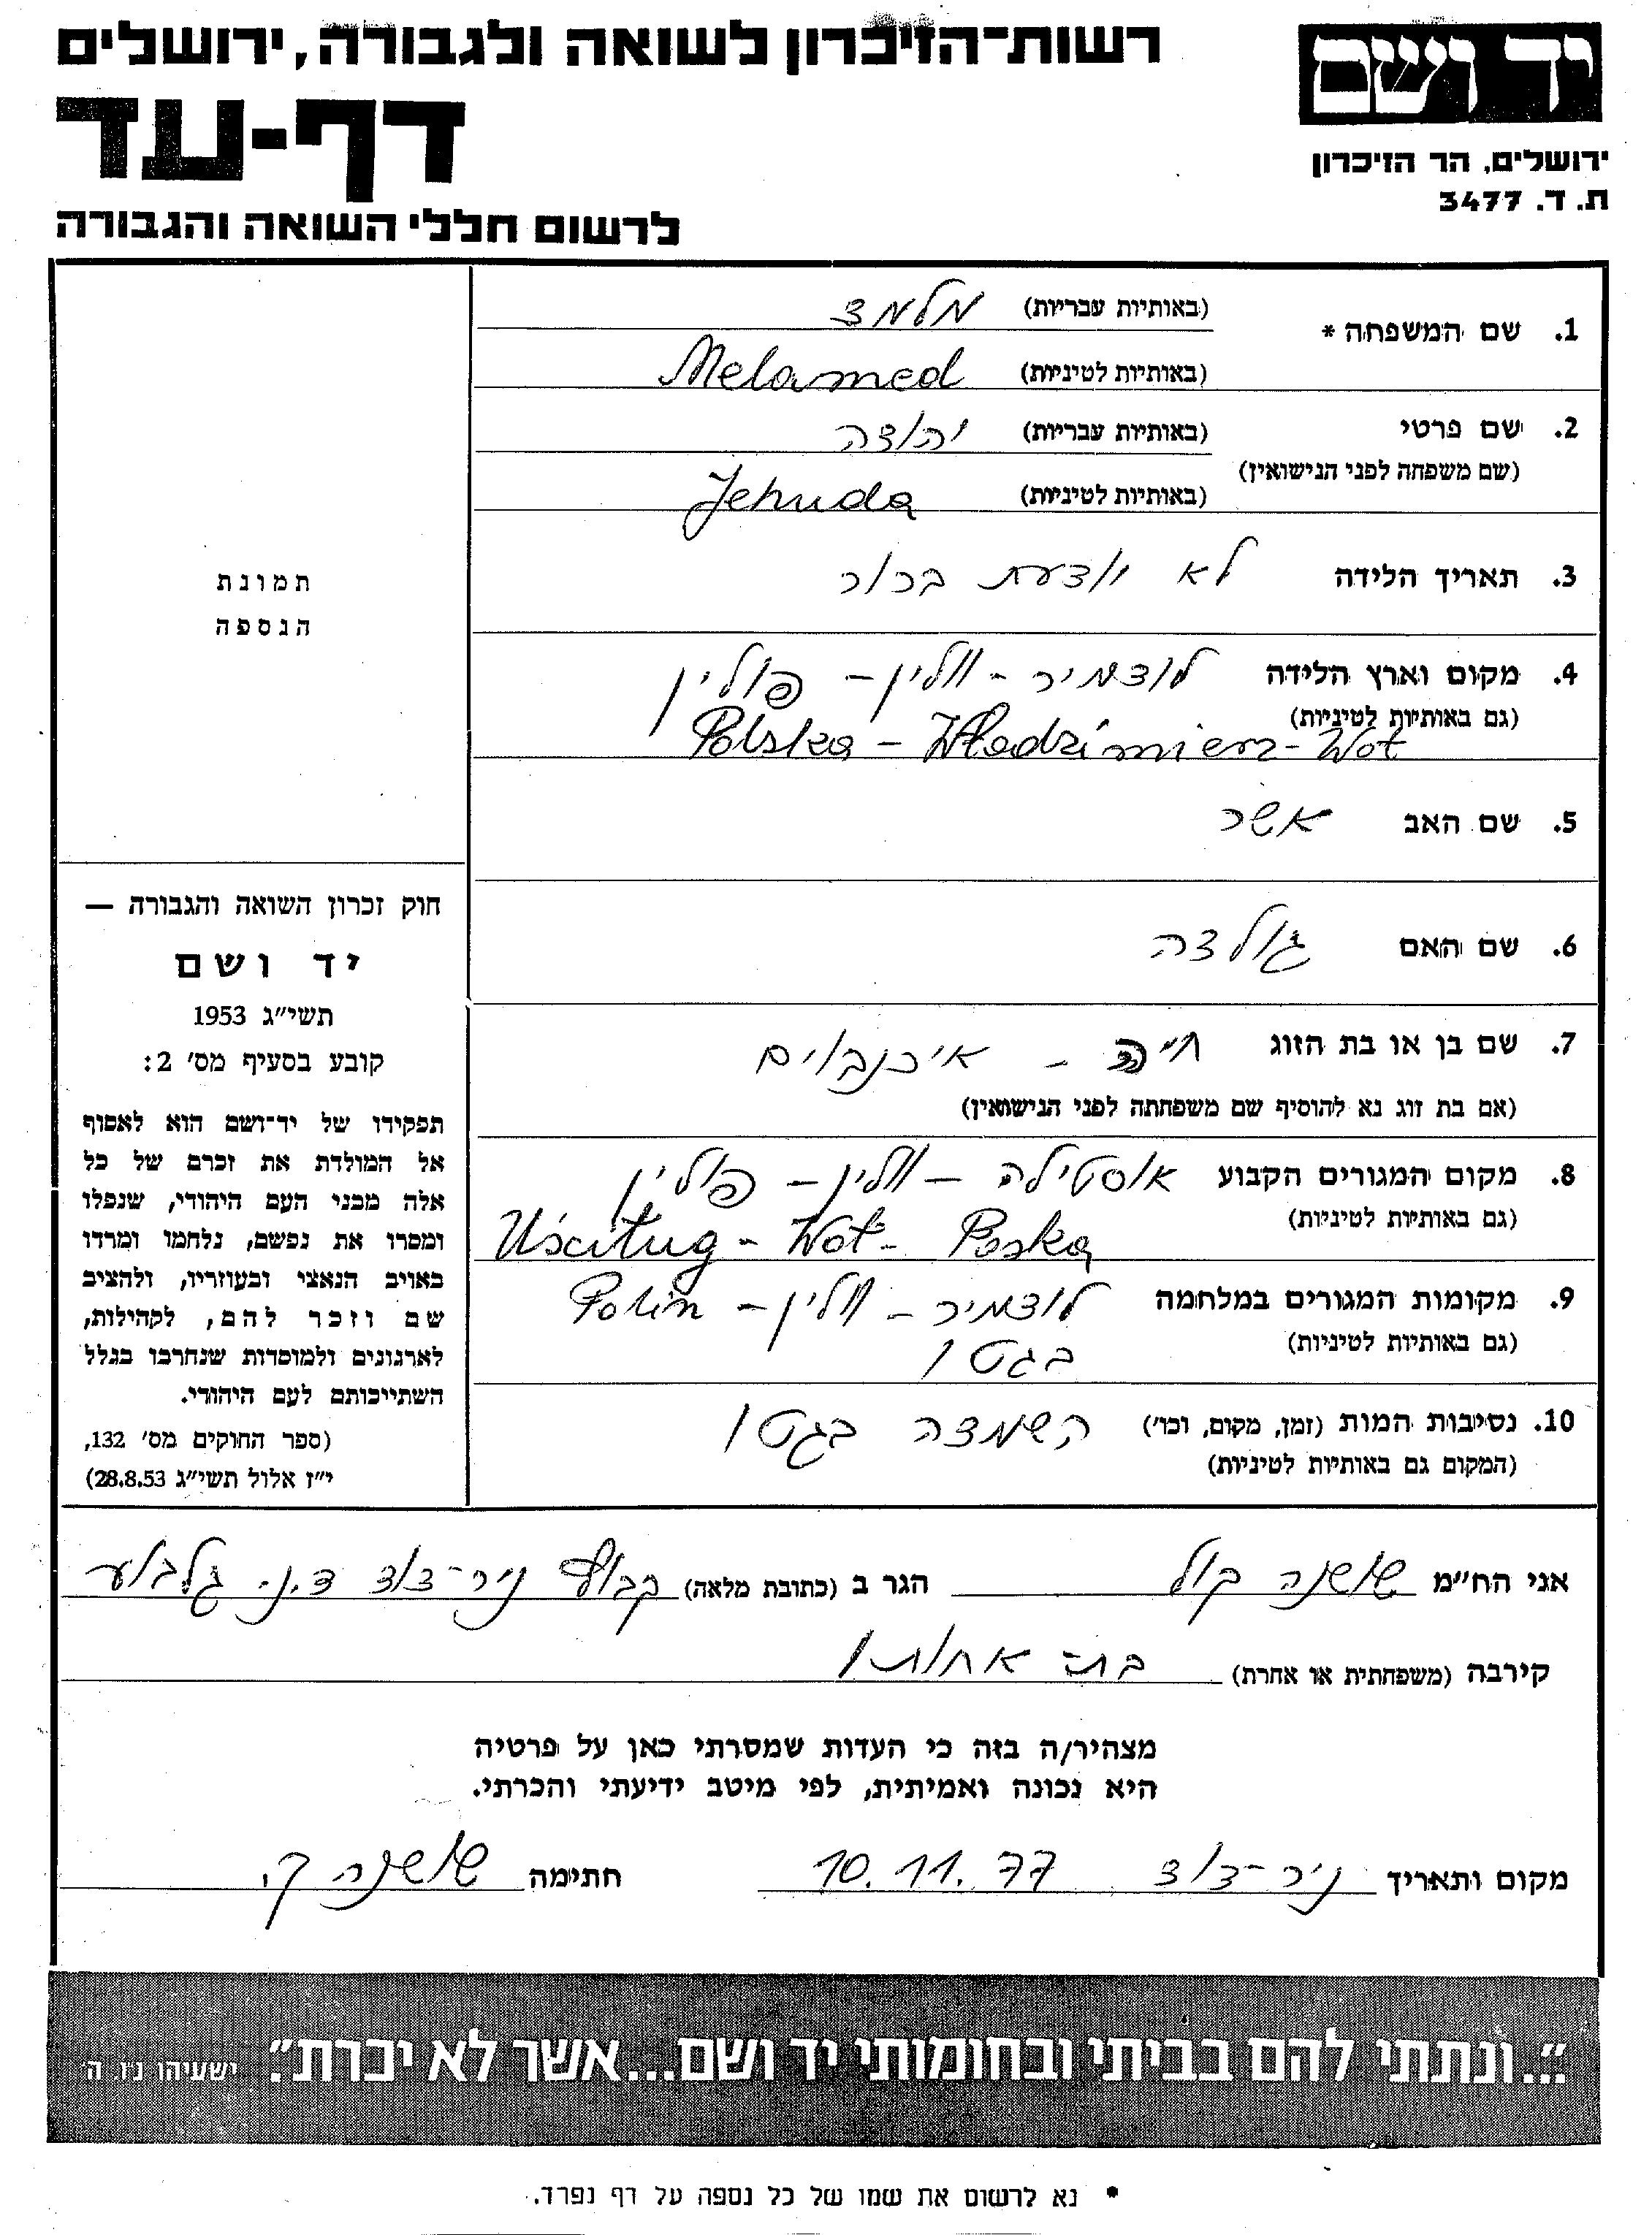 רשות־הזיכרון לשואה ולגבורה, ירושלים
יד ושם
דף-עד
ירושלים, הר הזיכרון
ת. ד. 3477
לרשום חללי השואה והגבורה
1. שם המשפחה * (באותיות עבריות) מלמד
(באותיות לטיניות) Melamed
2. שם פרטי (באותיות עבריות) יהודה
(שם משפחה לפני הנישואין)
(באותיות לטיניות) Jehuda
3. תאריך הלידה לא יודעת בכור
4. מקום וארץ הלידה לודמיר - וולין - פולין
(גם באותיות לטיניות)
Polska - Włodzimierz - Woł
5. שם האב אשר
6. שם האם גולדה
7. שם בן או בת הזוג חיה - איכנבוים
(אם בת זוג נא להוסיף שם משפחתה לפני הנישואין)
8. מקום המגורים הקבוע אוסטילה - וולין - פולין
(גם באותיות לטיניות)
Uścitug - Woł - Poska
9. מקומות המגורים במלחמה לודמיר - וולין - Polin
(גם באותיות לטיניות) בגטו
10. נסיבות המות (זמן, מקום, וכו') השמדה בגטו
(המקום גם באותיות לטיניות)
תמונת
הנספה
חוק זכרון השואה והגבורה —
יד ושם
תשי"ג 1953
קובע בסעיף מס' 2:
תפקידו של יד־ושם הוא לאסוף
אל המולדת את זכרם של כל
אלה מבני העם היהודי, שנפלו
ומסרו את נפשם, נלחמו ומרדו
באויב הנאצי ובעוזריו, ולהציב
שם וזכר להם, לקהילות,
לארגונים ולמוסדות שנחרבו בגלל
השתייכותם לעם היהודי.
(ספר החוקים מס' 132,
י"ז אלול תשי"ג 28.8.53)
אני הח"מ שושנה קול הגר ב (כתובת מלאה) קבוץ ניר-דוד ד.נ. גלבוע
קירבה (משפחתית או אחרת) בת אחותו
מצהיר/ה בזה כי העדות שמסרתי כאן על פרטיה
היא נכונה ואמיתית, לפי מיטב ידיעתי והכרתי.
מקום ותאריך ניר-דוד 10.11.77 חתימה שושנה ק.
"...ונתתי להם בביתי ובחומותי יד ושם...אשר לא יכרת". ישעיהו נ"ו, ה'
* נא לרשום את שמו של כל נספה על דף נפרד.